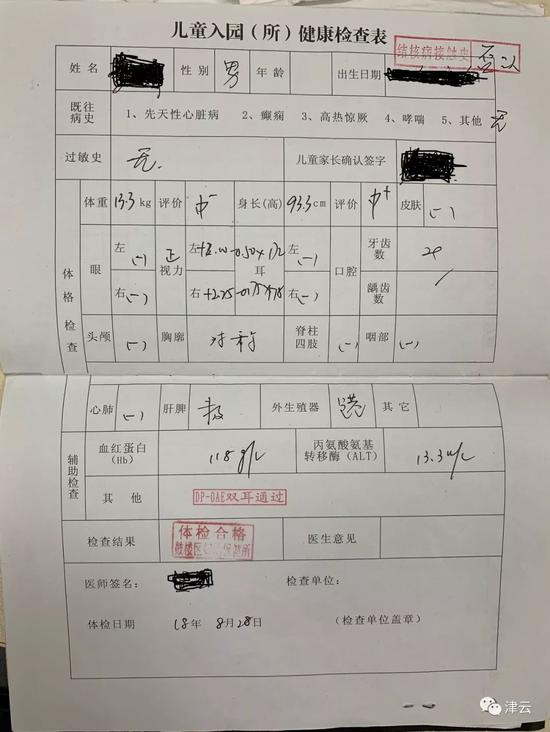 儿童入园（所）健康检查表
结核病接触史 否认
姓名 性别 男 年龄 出生日期
既往病史 1、先天性心脏病 2、癫痫 3、高热惊厥 4、哮喘 5、其他 无
过敏史 无. 儿童家长确认签字
体重 13.3kg 评价 中- 身长(高) 93.3cm 评价 中+ 皮肤 (-)
体格检查
眼 左 (-) 视力 左 耳 左 (-) 口腔 牙齿数
右 (-) 右 +2.25 右 (-) 龋齿数 /
头颅 (-) 胸廓 对称 脊柱四肢 (-) 咽部 (-)
心肺 (-) 肝脾 外生殖器 其它
辅助检查
血红蛋白(Hb) 118g/L 丙氨酸氨基转移酶(ALT) 13.3u/L
其他 DP-OAE双耳通过
检查结果 体检合格 医生意见
医师签名： 检查单位：
体检日期 18年 8月28日 （检查单位盖章）
津云